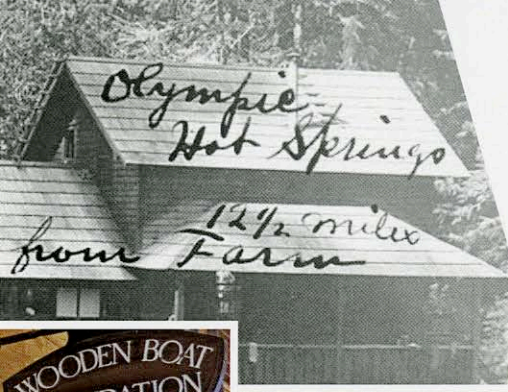 Olympic
Hot Springs
12 1/2 miles
from Farm
WOODEN BOAT